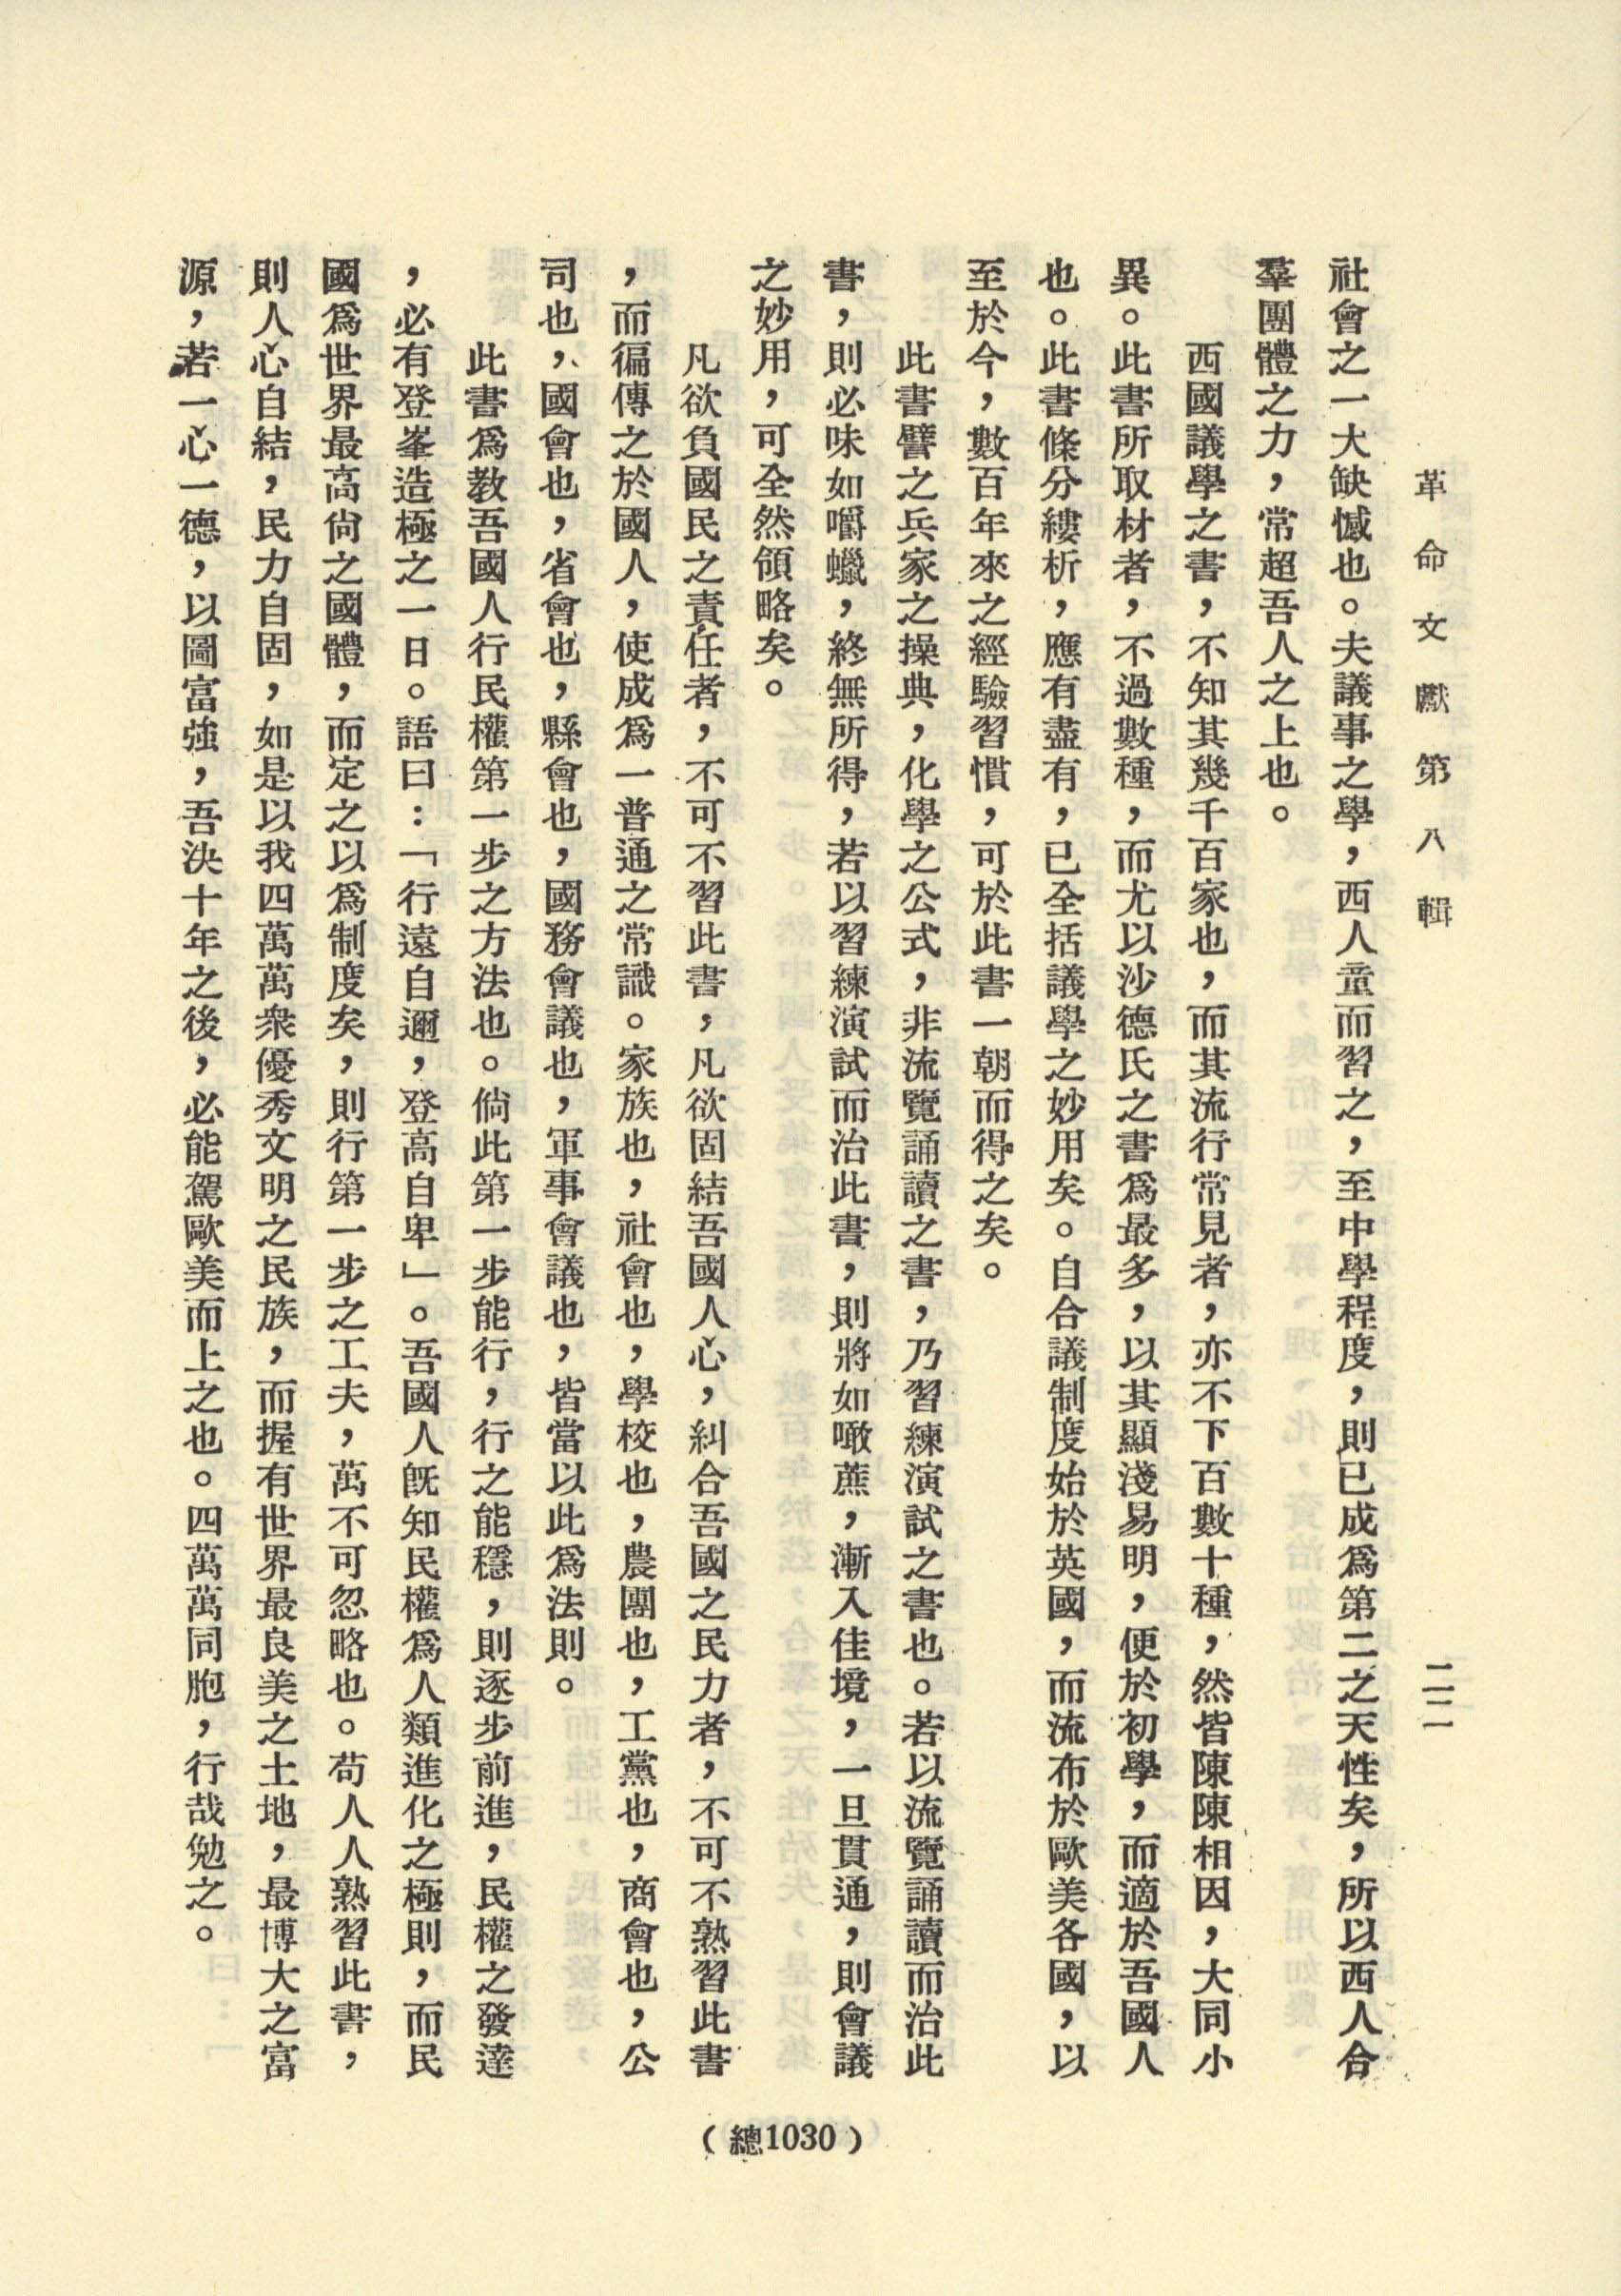 革命文獻第八輯
二二
社會之一大缺憾也。夫議事之學，西人童而習之，至中學程度，則已成爲第二之天性矣，所以西人合
羣團體之力，常超吾人之上也。
西國議學之書，不知其幾千百家也，而其流行常見者，亦不下百數十種，然皆陳陳相因，大同小
異。此書所取材者，不過數種，而尤以沙德氏之書爲最多，以其顯淺易明，便於初學，而適於吾國人
也。此書條分縷析，應有盡有，已全括議學之妙用矣。自合議制度始於英國，而流布於歐美各國，以
至於今，數百年來之經驗習慣，可於此書一朝而得之矣。
此書譬之兵家之操典，化學之公式，非流覽誦讀之書，乃習練演試之書也。若以流覽誦讀而治此
書，則必味如嚼蠟，終無所得，若以習練演試而治此書，則將如噉蔗，漸入佳境，一旦貫通，則會議
之妙用，可全然領略矣。
凡欲負國民之責任者，不可不習此書，凡欲固結吾國人心，糾合吾國之民力者，不可不熟習此書
，而徧傳之於國人，使成爲一普通之常識。家族也，社會也，學校也，農團也，工黨也，商會也，公
司也，國會也，省會也，縣會也，國務會議也，軍事會議也，皆當以此爲法則。
此書爲教吾國人行民權第一步之方法也。倘此第一步能行，行之能穩，則逐步前進，民權之發達
，必有登峯造極之一日。語曰：「行遠自邇，登高自卑」。吾國人旣知民權爲人類進化之極則，而民
國爲世界最高尙之國體，而定之以爲制度矣，則行第一步之工夫，萬不可忽略也。苟人人熟習此書，
則人心自結，民力自固，如是以我四萬萬衆優秀文明之民族，而握有世界最良美之土地，最博大之富
源，若一心一德，以圖富強，吾決十年之後，必能駕歐美而上之也。四萬萬同胞，行哉勉之。
（總1030）